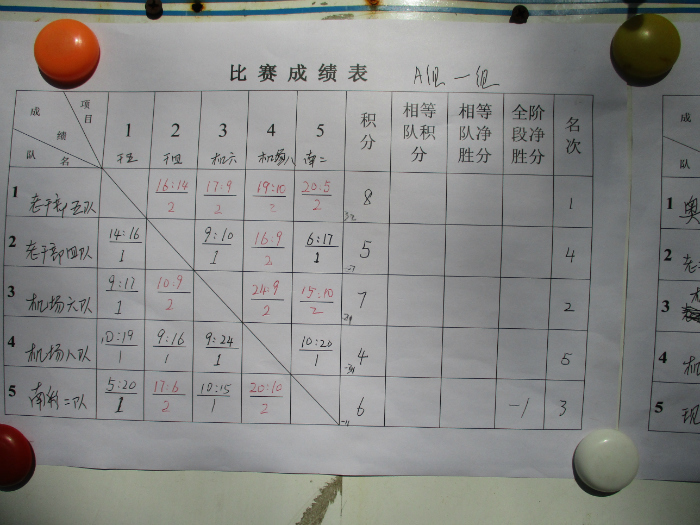 比赛成绩表 A组 一组
成绩 项目 队名 1 干五 2 干四 3 机六 4 机场八 5 南二 积分 相等队积分 相等队净胜分 全阶段净胜分 名次
1 老干部五队 16:14 2 17:9 2 19:10 2 20:5 2 8 1
2 老干部四队 14:16 1 9:10 1 16:9 2 6:17 1 5 4
3 机场六队 9:17 1 10:9 2 24:9 2 15:10 2 7 2
4 机场八队 10:19 1 9:16 1 9:24 1 10:20 1 4 5
5 南彩二队 5:20 1 17:6 2 10:15 1 20:10 2 6 -1 3
队
1 奥
2 老
3
4 机
5 现